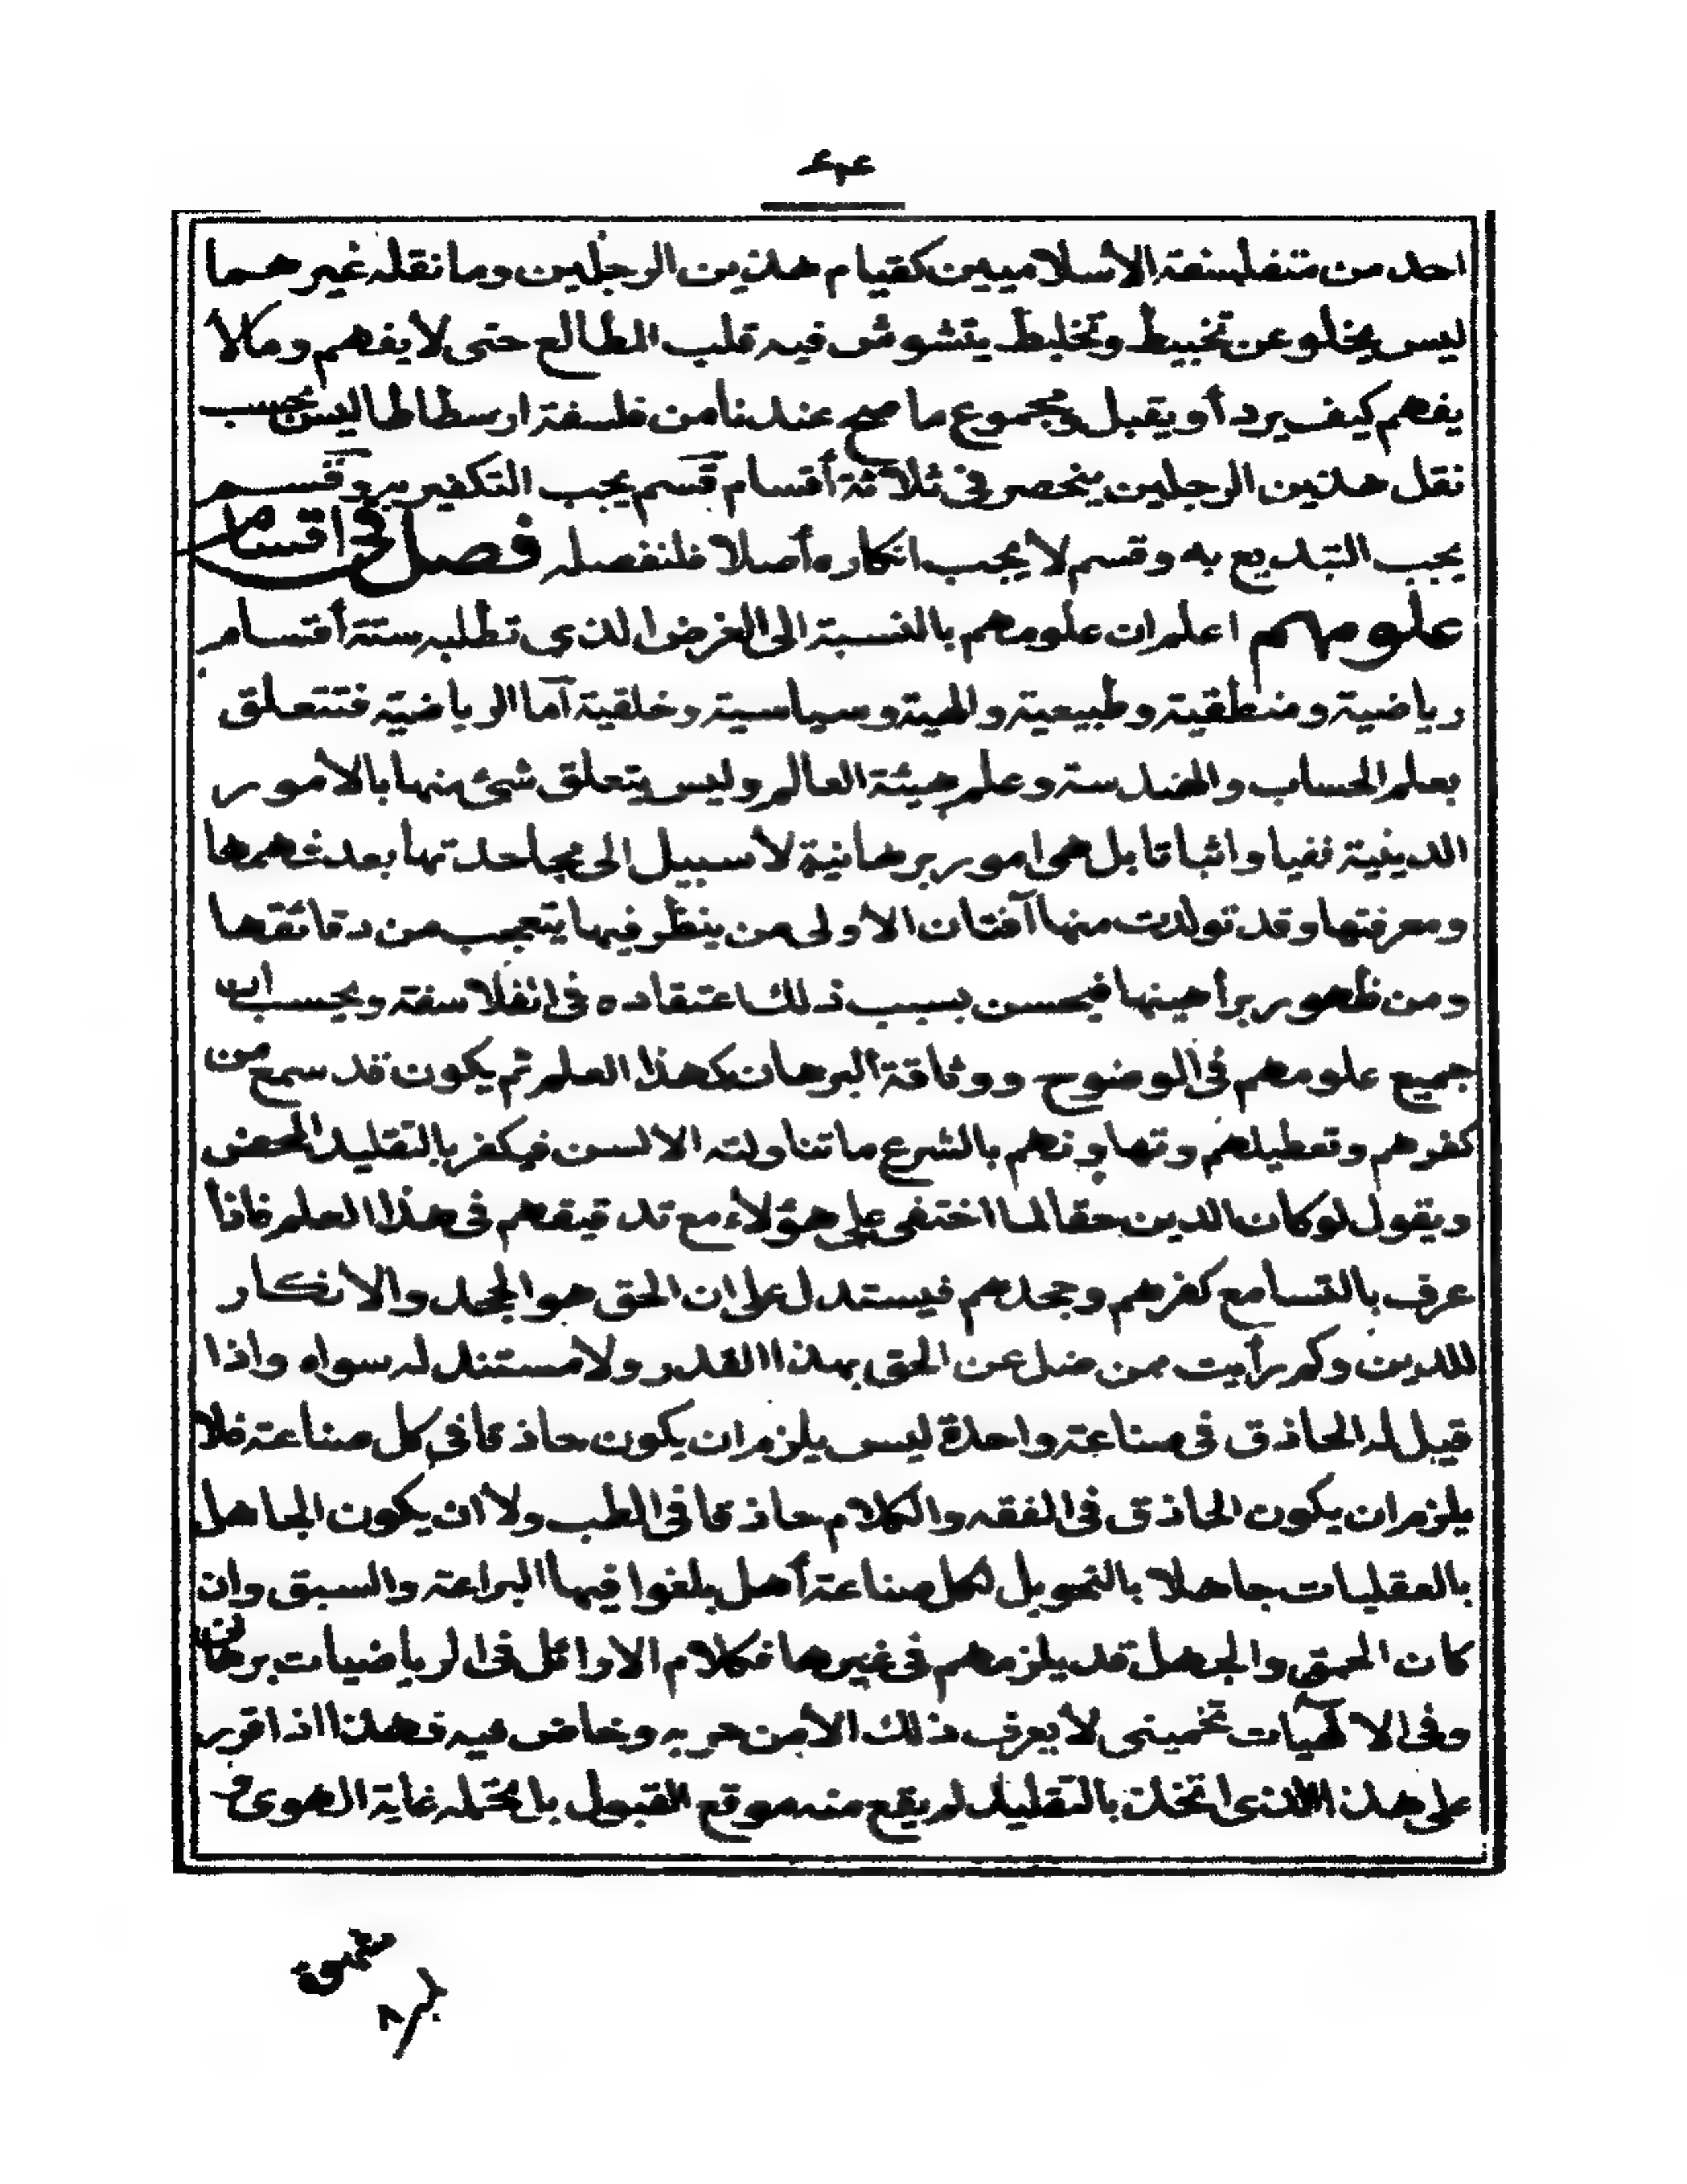 احد من متفلسفة الأسلاميين كقيام هذين الرجلين وما نقله غيرهما
ليس يخلو عن تخبيط وتخليط يتشوش فيه قلب المطالع حتى لا يفهم ومالا
يفهم كيف يرد أو يقبل ومجموع ما صح عندنا من فلسفة ارسطاطاليس بحسب
نقل هذين الرجلين ينحصر فى ثلاثة أقسام قسم يجب التكفير به وقسم
يجب التبديع به وقسم لا يجب انكاره أصلا فلنفصله فصل فى اقسام
علومهم اعلم ان علومهم بالنسبة الى الغرض الذى تطلبه ستة أقسام
رياضية ومنطقية وطبيعية والهية وسياسية وخلقية اما الرياضية فتتعلق
بعلم الحساب والهندسة وعلم هيئة العالم وليس يتعلق شئ منها بالامور
الدينية نفيا واثباتا بل هى امور برهانية لا سبيل الى مجاحدتها بعد فهمها
ومعرفتها وقد تولدت منها آفتان الأولى من ينظر فيها يتعجب من دقائقها
ومن ظهور براهينها فيحسن بسبب ذلك اعتقاده فى الفلاسفة ويحسب ان
جميع علومهم فى الوضوح ووثاقة البرهان كهذا العلم ثم يكون قد سمع من
كفرهم وتعطيلهم وتهاونهم بالشرع ما تناولته الالسن فيكفر بالتقليد المحض
ويقول لو كان الدين حقا لما اختفى على هؤلاء مع تدقيقهم فى هذا العلم فاذا
عرف بالتسامع كفرهم وجحدهم فيستدل على ان الحق هو الجحد والانكار
للدين وكم رأيت ممن ضل عن الحق بهذا القدر ولا مستند له سواه واذا
قيل له الحاذق فى صناعة واحدة ليس يلزم ان يكون حاذقا فى كل صناعة فلا
يلزم ان يكون الحاذق فى الفقه والكلام حاذقا فى الطب ولا ان يكون الجاهل
بالعقليات جاهلا بالنحو بل لكل صناعة أهل بلغوا فيها البراعة والسبق وان
كان الحمق والجهل قد يلزمهم فى غيرها فكلام الاوائل فى الرياضيات برهانى
وفى الالهيات تخمينى لا يعرف ذلك الا من جربه وخاض فيه فهذا اذا قرر
على هذا الذى اتخذ بالتقليد لم يقع منه موقع القبول بل تحمله غاية الهوى و